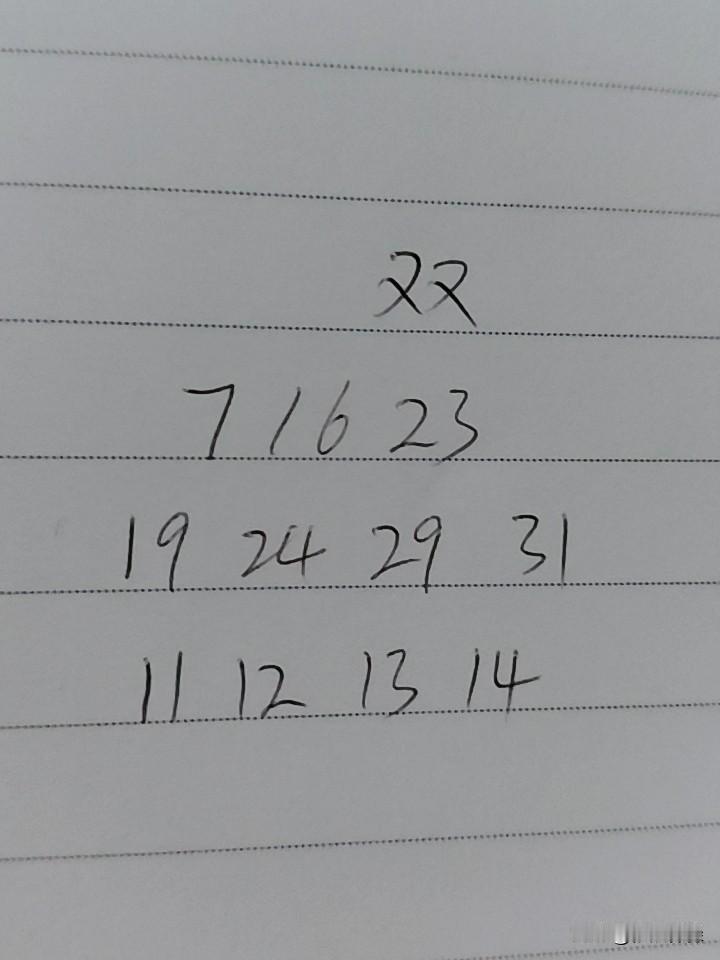 双
7 16 23
19 24 29 31
11 12 13 14